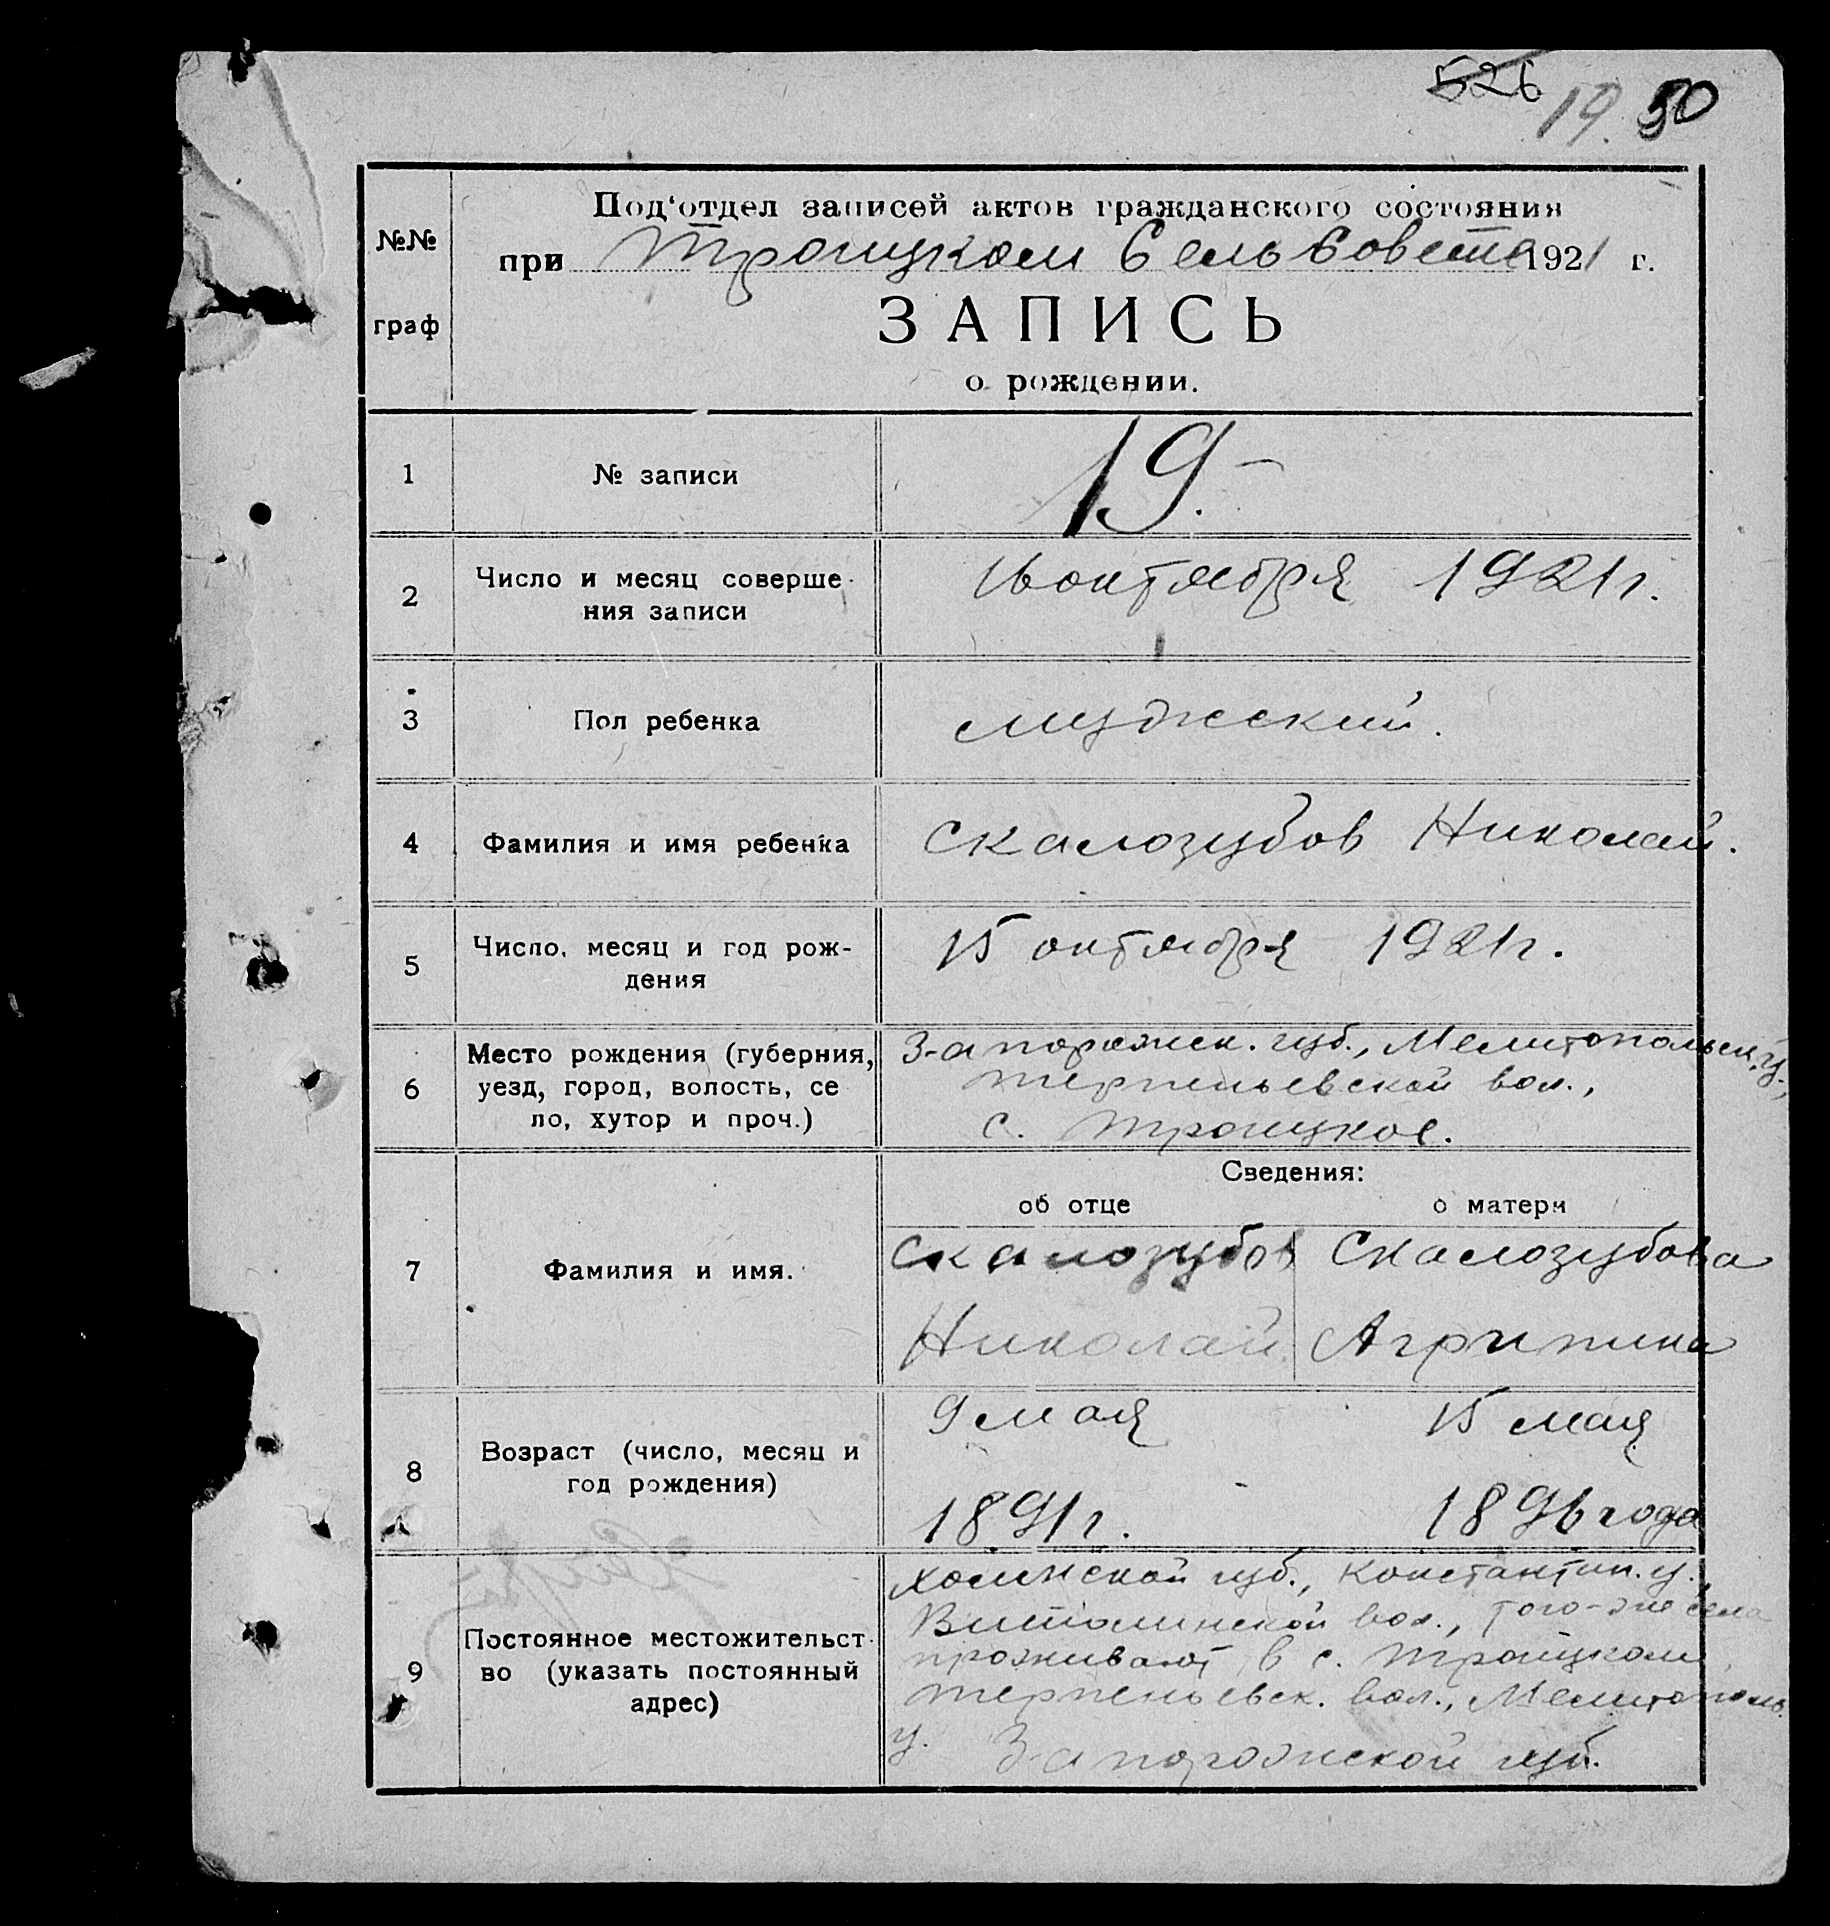 526
19. 50
№№
граф
Под‘отдел записей актов гражданского состояния
при Троицком Сельсовете 1921 г.
ЗАПИСЬ
о рождении.
1 № записи 19.-
2 Число и месяц соверше-
ния записи
16 октября 1921 г.
3 Пол ребенка мужеский.
4 Фамилия и имя ребенка Скалозубов Николай.
5 Число, месяц и год рож-
дения
15 октября 1921 г.
6 Место рождения (губерния,
уезд, город, волость, се
ло, хутор и проч.)
Запорожск. губ., Мелитопольск. у.,
Терпеньевской вол.,
с. Троицкое.
Сведения:
об отце о матери
7 Фамилия и имя.
Скалозубов Скалозубова
Николай Агрипина
8 Возраст (число, месяц и
год рождения)
9 мая 15 мая
1891 г. 1896 года
9 Постоянное местожительст-
во (указать постоянный
адрес)
Холмской губ., Константин. у.,
вол., того-же села
проживают в с. Троицком
Терпеньевск. вол., Мелитополь.
у. Запорожской губ.